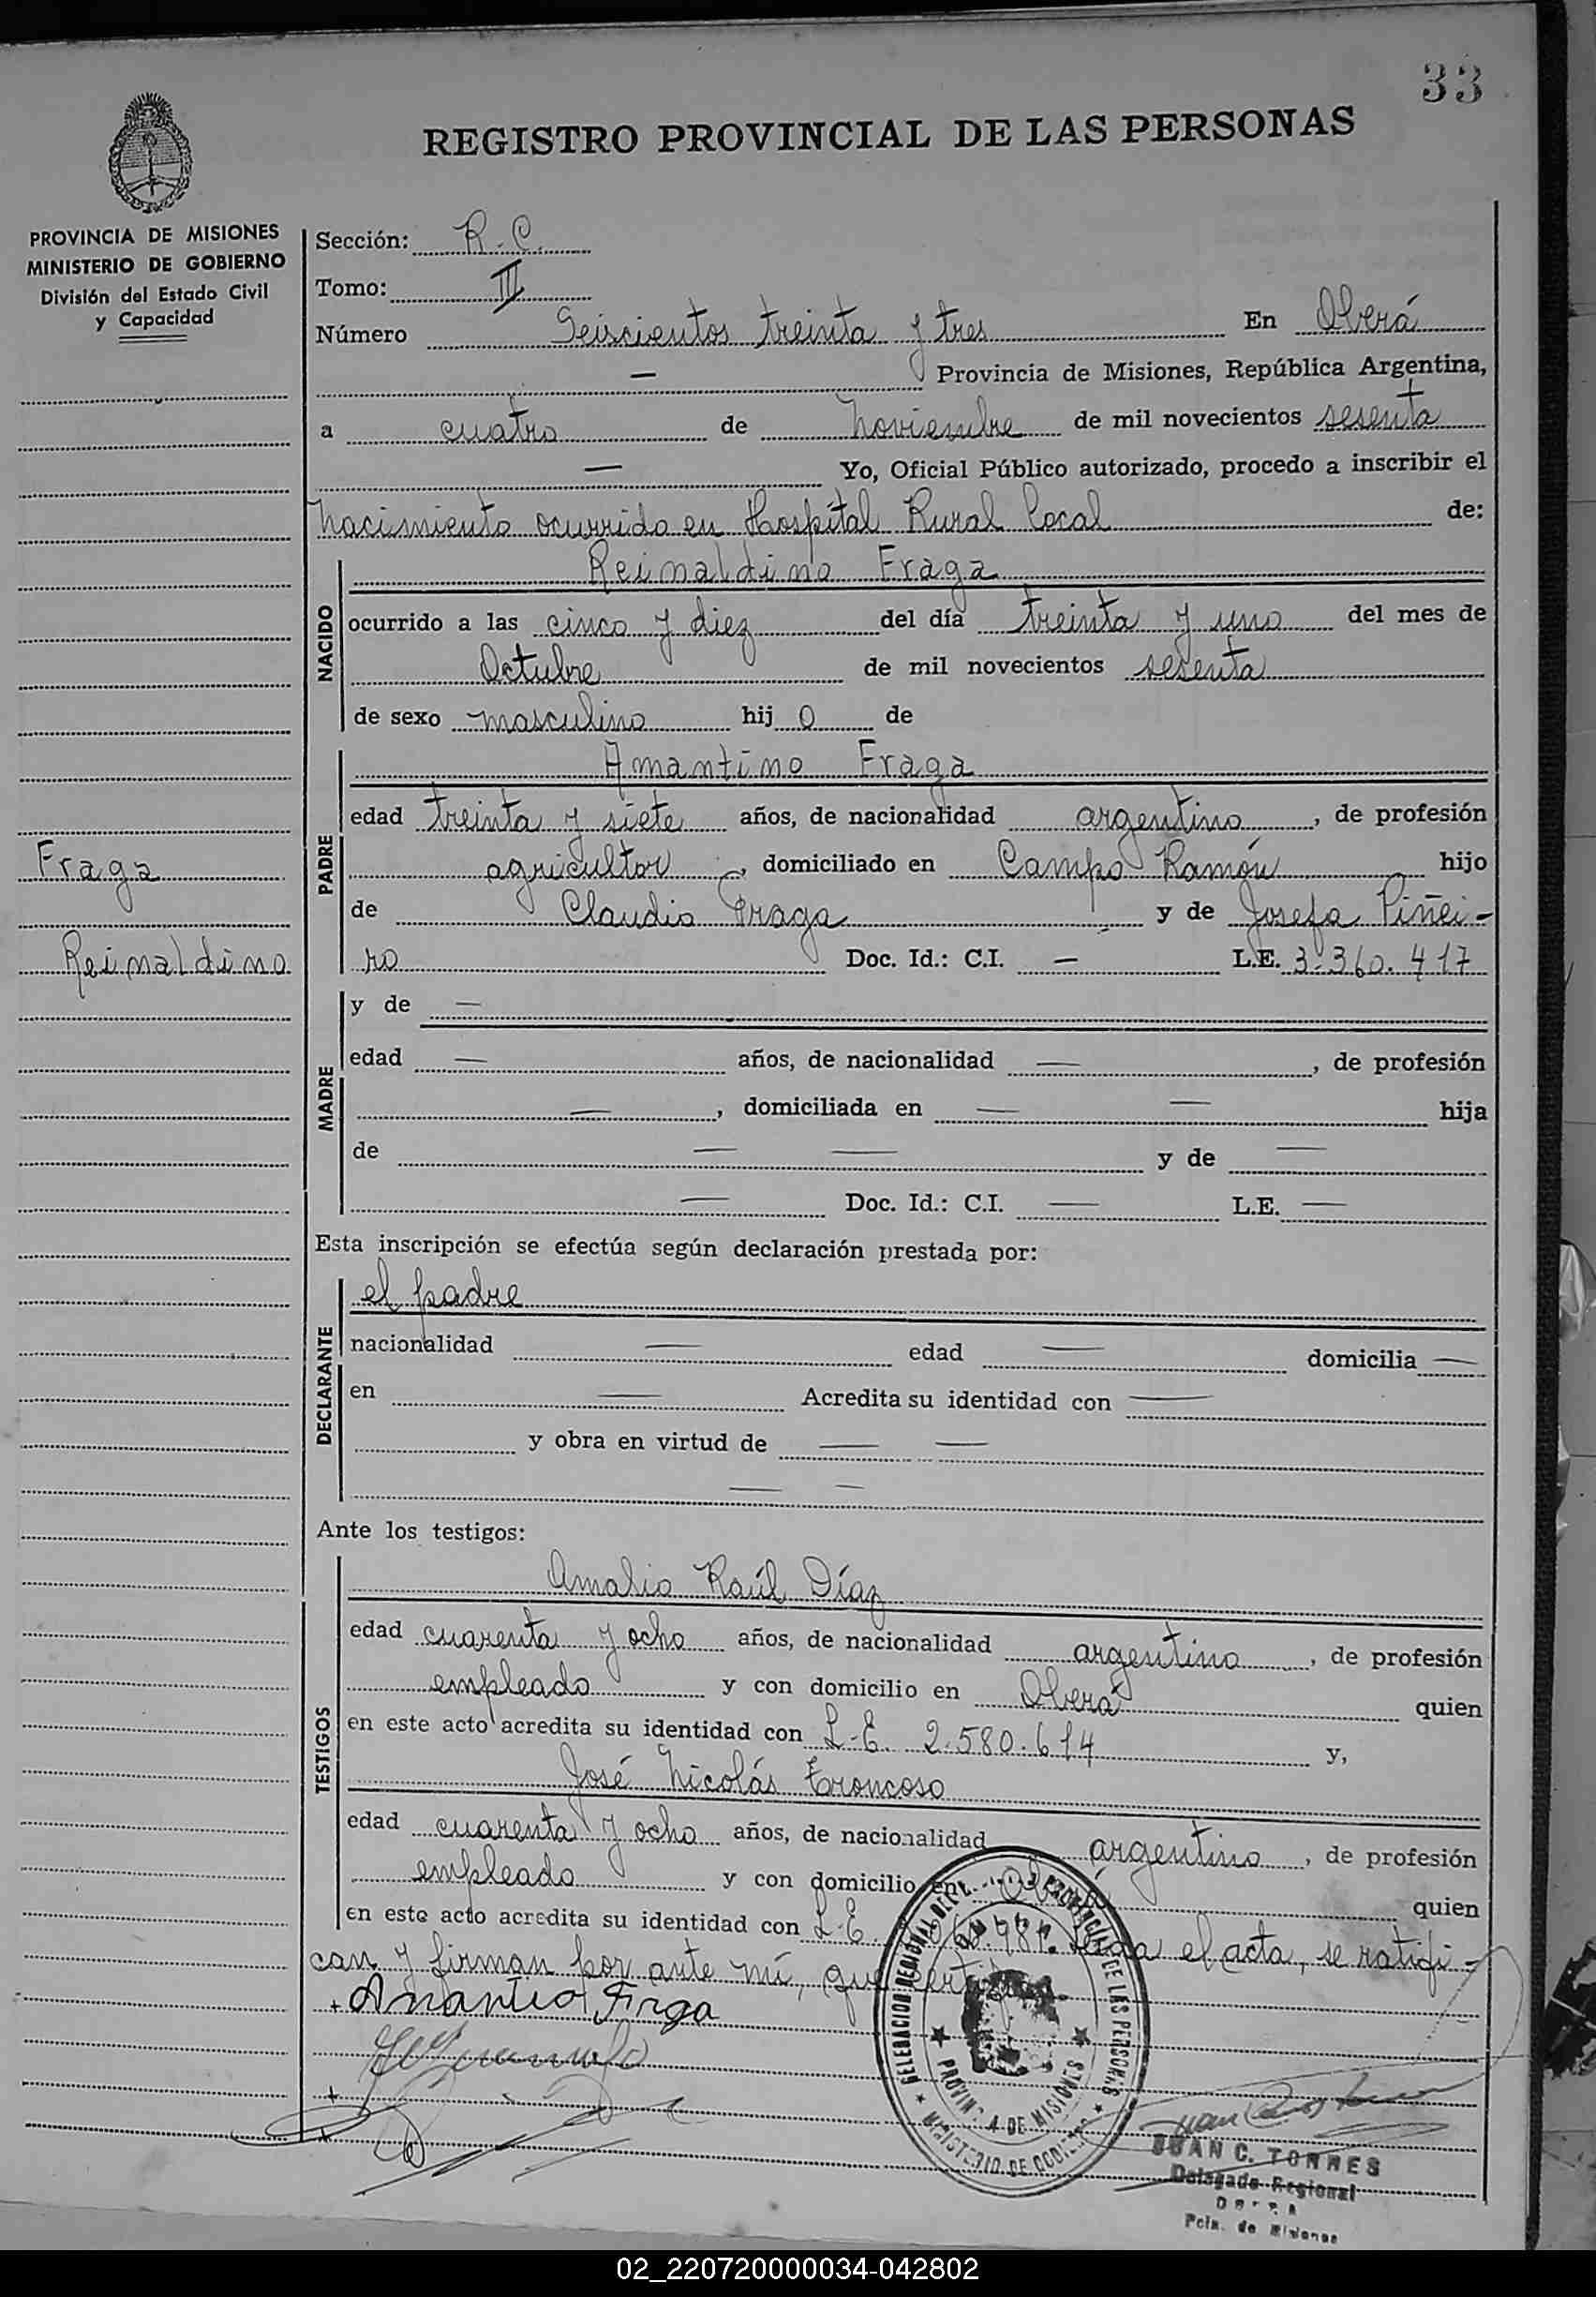 33
REGISTRO PROVINCIAL DE LAS PERSONAS
PROVINCIA DE MISIONES
MINISTERIO DE GOBIERNO
División del Estado Civil
y Capacidad
Sección: R. C.
Tomo: II
Número Seiscientos treinta y tres En Oberá
— Provincia de Misiones, República Argentina,
a cuatro de Noviembre de mil novecientos sesenta
— Yo, Oficial Público autorizado, procedo a inscribir el
Nacimiento ocurrido en Hospital Rural Local de:
NACIDO
Reinaldino Fraga
ocurrido a las cinco y diez del día treinta y uno del mes de
Octubre de mil novecientos sesenta
de sexo masculino hij o de
PADRE
Amantino Fraga
edad treinta y siete años, de nacionalidad argentino, de profesión
agricultor, domiciliado en Campo Ramón hijo
de Claudio Fraga y de Josefa Piñei-
ro Doc. Id.: C.I. — L.E. 3.360.417
Fraga
Reinaldino
MADRE
y de —
edad — años, de nacionalidad —, de profesión
—, domiciliada en — — hija
de — — y de —
— Doc. Id.: C.I. — L.E. —
Esta inscripción se efectúa según declaración prestada por:
DECLARANTE
el padre
nacionalidad — edad — domicilia —
en — Acredita su identidad con —
y obra en virtud de — —
— —
Ante los testigos:
TESTIGOS
Amalio Raúl Díaz
edad cuarenta y ocho años, de nacionalidad argentino, de profesión
empleado y con domicilio en Oberá quien
en este acto acredita su identidad con L.E. 2.580.614 y,
José Nicolás Troncoso
edad cuarenta y ocho años, de nacionalidad argentino, de profesión
empleado y con domicilio en quien
en este acto acredita su identidad con L.E. el acta, se ratifi-
can y firman por ante mí, que
Amantio Frga
DELEGACION REGIONAL DEL PROVINCIAL DE LAS PERSONAS
PROVINCIA DE MISIONES
MINISTERIO DE GOBIERNO
JUAN C. TORRES
Delegado Regional
Pcia. de Misiones
02_220720000034-042802